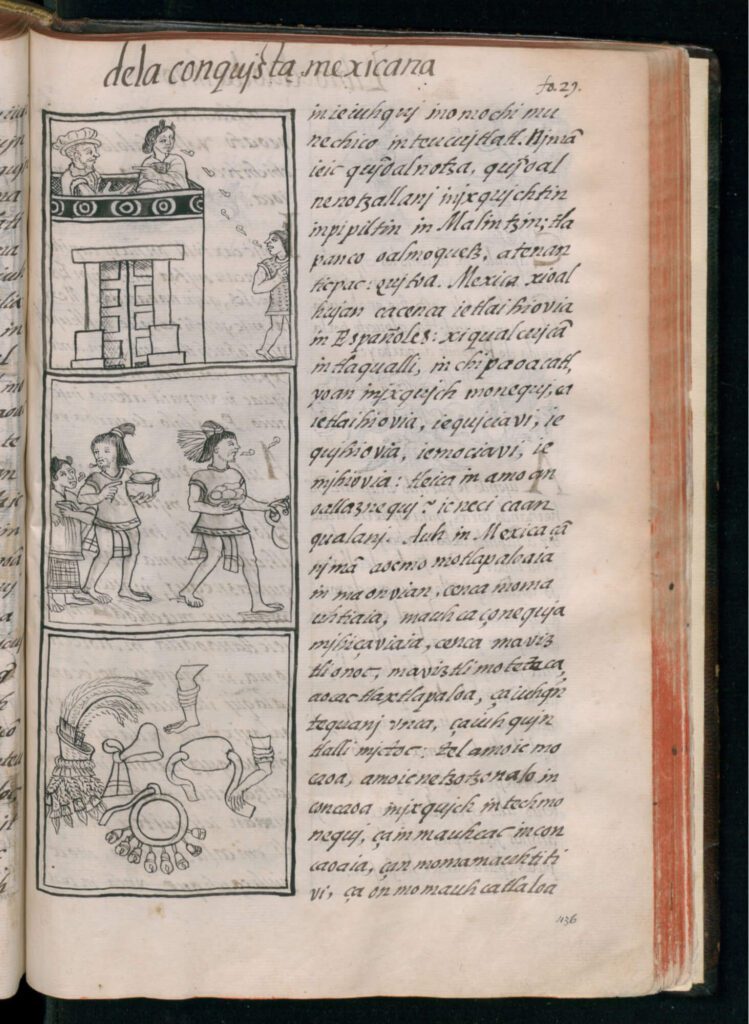 dela conqujsta mexicana
fo. 29.
in ie iuhquj in omochi mu
nechico in teucujtlatl. Njmā
ie ic qujoalnotza, qujoal
nenotzallanj injxqujchtin
in pipiltin in Malintzin; tla
panco oalmoquetz, atenan
ticpac: qujtoa. Mexica xioal
hujan ca cenca ie tlaihiovia
in Españoles: xiqualcujcā
in tlaqualli, in chipaoac atl,
yoan injxqujch monequj, ca
ie tlaihiovia, ie qujciavi, ie
qujhiovia, ie mociavi, ie
mjhiovia: tleica in amo an
oallaznequj? ie neci ca an
qualanj. Auh in Mexica çā
njmā aocmo motlapaloaia
in ma onvian, cenca moma
uhtiaia, mauhcaçonequja
mjhiçaviaia, cenca maviz
tli onoc, maviztli moteteca,
aocac tlaxtlapaloa, ça iuhqujn
tequanj vnca, ça iuhqujn
tlalli mjctoc: tel amo ic mo
caoa, amo ic netzotzonalo in
concaoa injxqujch intech mo
nequj, ça in mauhcac in con
caoaia, çan momamauhtiti
vi, ça onmomauhcatlaloa
436